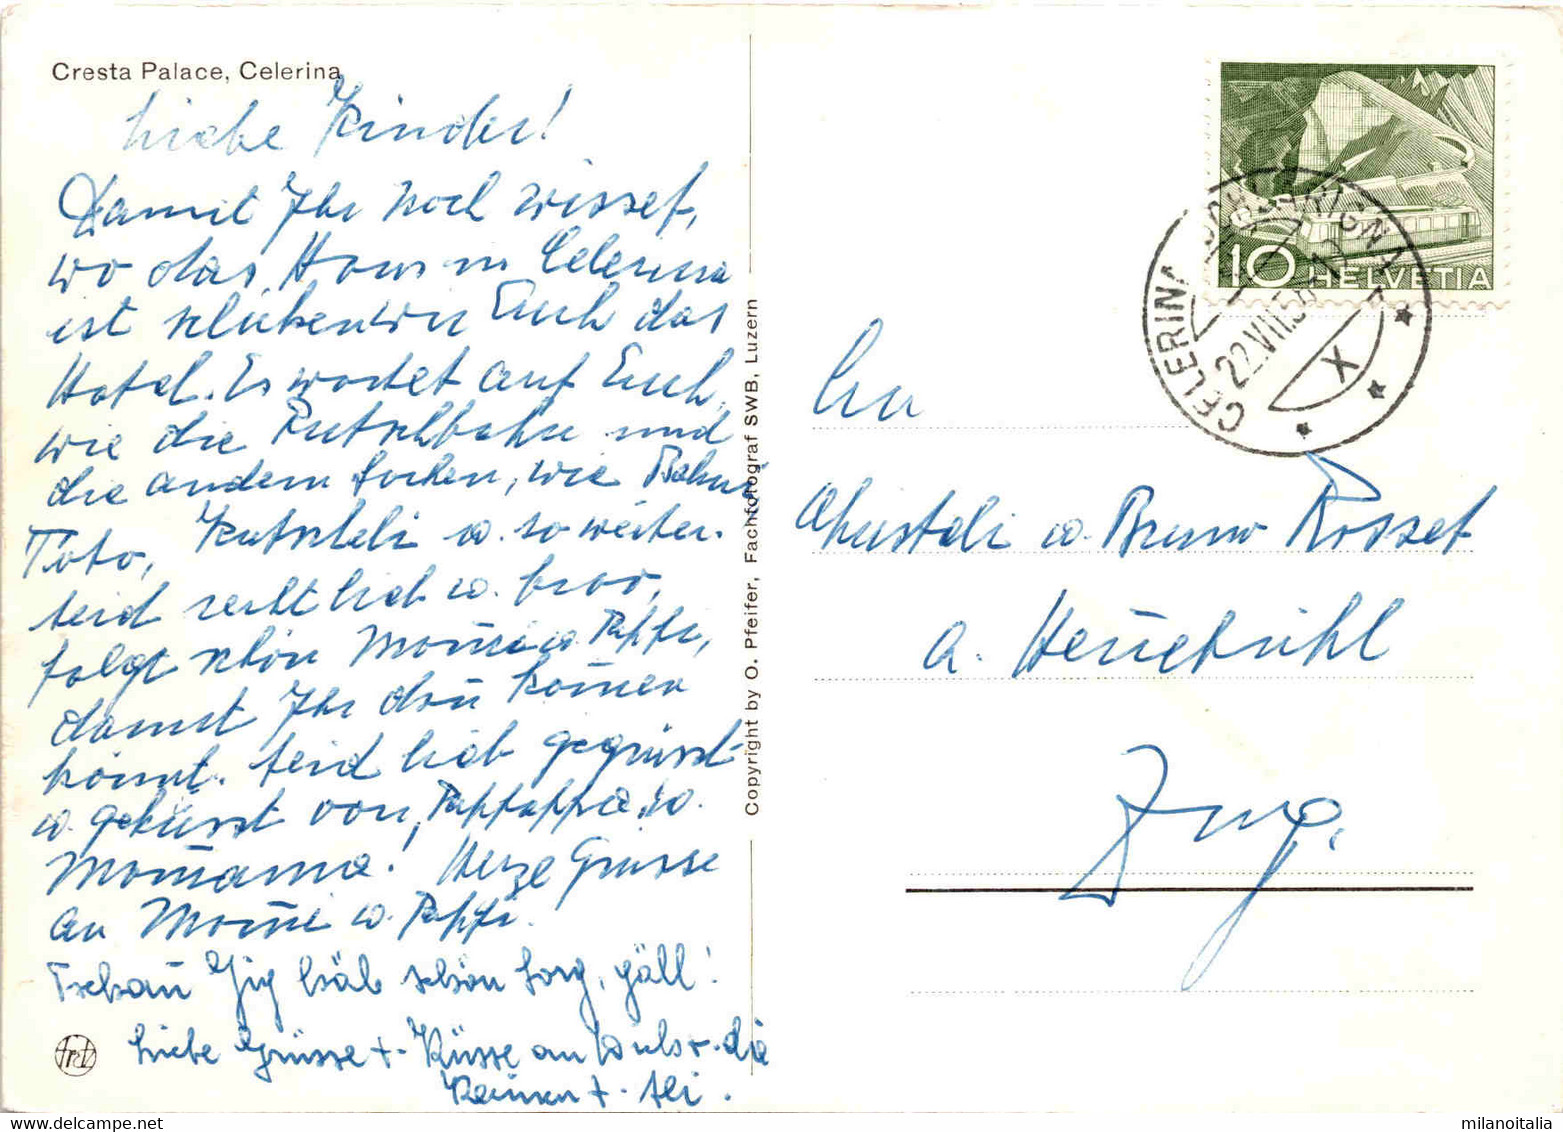 Cresta Palace, Celerina
Liebe Kinder!
Damit Ihr noch wisset,
wo das Haus in Celerina
ist schicken wir Euch das
Hotel. Es wartet auf Euch,
wie die Rutschbahn und
die andern Sachen, wie
Toto, Kutscheli u. so weiter.
Seid recht lieb u. brav,
folgt schön Mom̄i u. Pappi,
damit Ihr dan̄ kom̄en
kön̄t. Seid lieb gegrüsst
u. geküsst von Pappappa u.
Mom̄ama! Herze Grüsse
an Mom̄i u. Pappi.
Tschau Gig häb schön Sorg, gäll!
Liebe Grüsse + Küsse an
+
Copyright by O. Pfeifer, Fachfotograf SWB, Luzern
10 HELVETIA
CELERINA SCHLARIGNA
22.VII.5
X
An
Christeli u. Bruno Rosset
a.
Zug.
milanoitalia